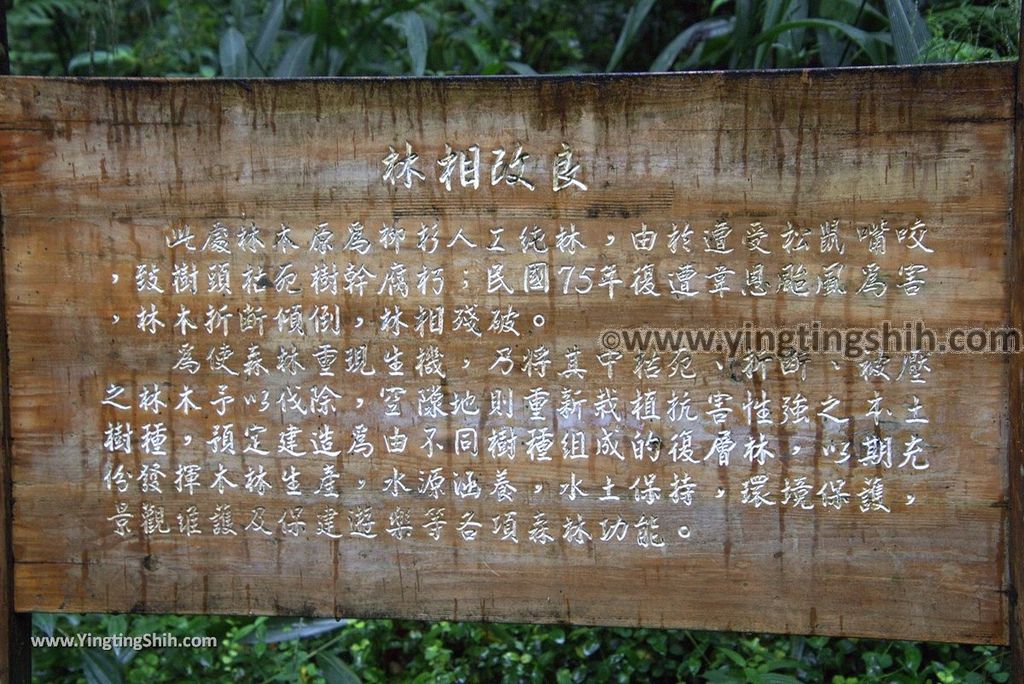 林相改良
此處林木原為柳杉人工純林，由於遭受松鼠嘴咬
，致樹頭枯死樹幹腐朽；民國75年復遭韋恩颱風為害
，林木折斷傾倒，林相殘破。
©www.yingtingshih.com©
為使森林重現生機，乃將其中枯死、折斷、被壓
之林木予以伐除，空隙地則重新栽植抗害性強之本土
樹種，預定建造為由不同樹種組成的復層林，以期充
份發揮木林生產，水源涵養，水土保持，環境保護，
景觀維護及保建遊樂等各項森林功能。
www.YingtingShih.com©